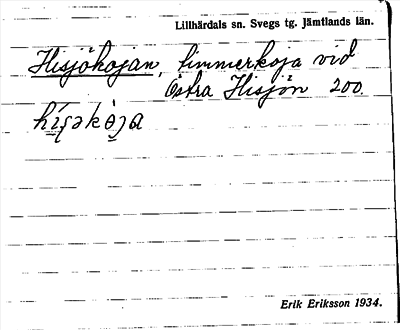 Lillhärdals sn. Svegs tg. Jämtlands län.
Hisjökojan, timmerkoja vid
Östra Hisjön 200.
Erik Eriksson 1934.